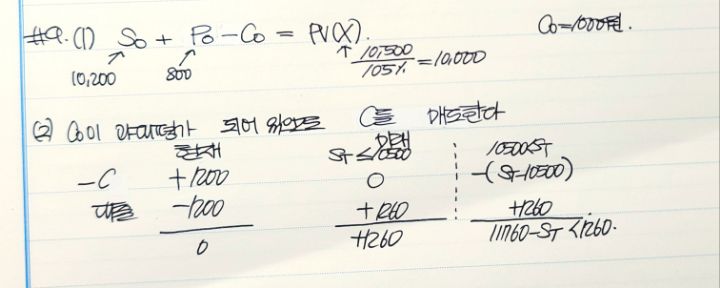 #9. (1) S₀ + P₀ - C₀ = PV(X). C₀=1000원.
10,200 800 10,500/105% = 10,000
(2) C₀이 과대평가 되어 있으므로 C를 매도한다
현재 미래
S_T ≤ 10500 10500<S_T
-C +1200 0 -(S_T-10500)
-1200 +1260 +1260
0 +1260 11760-S_T<1260.